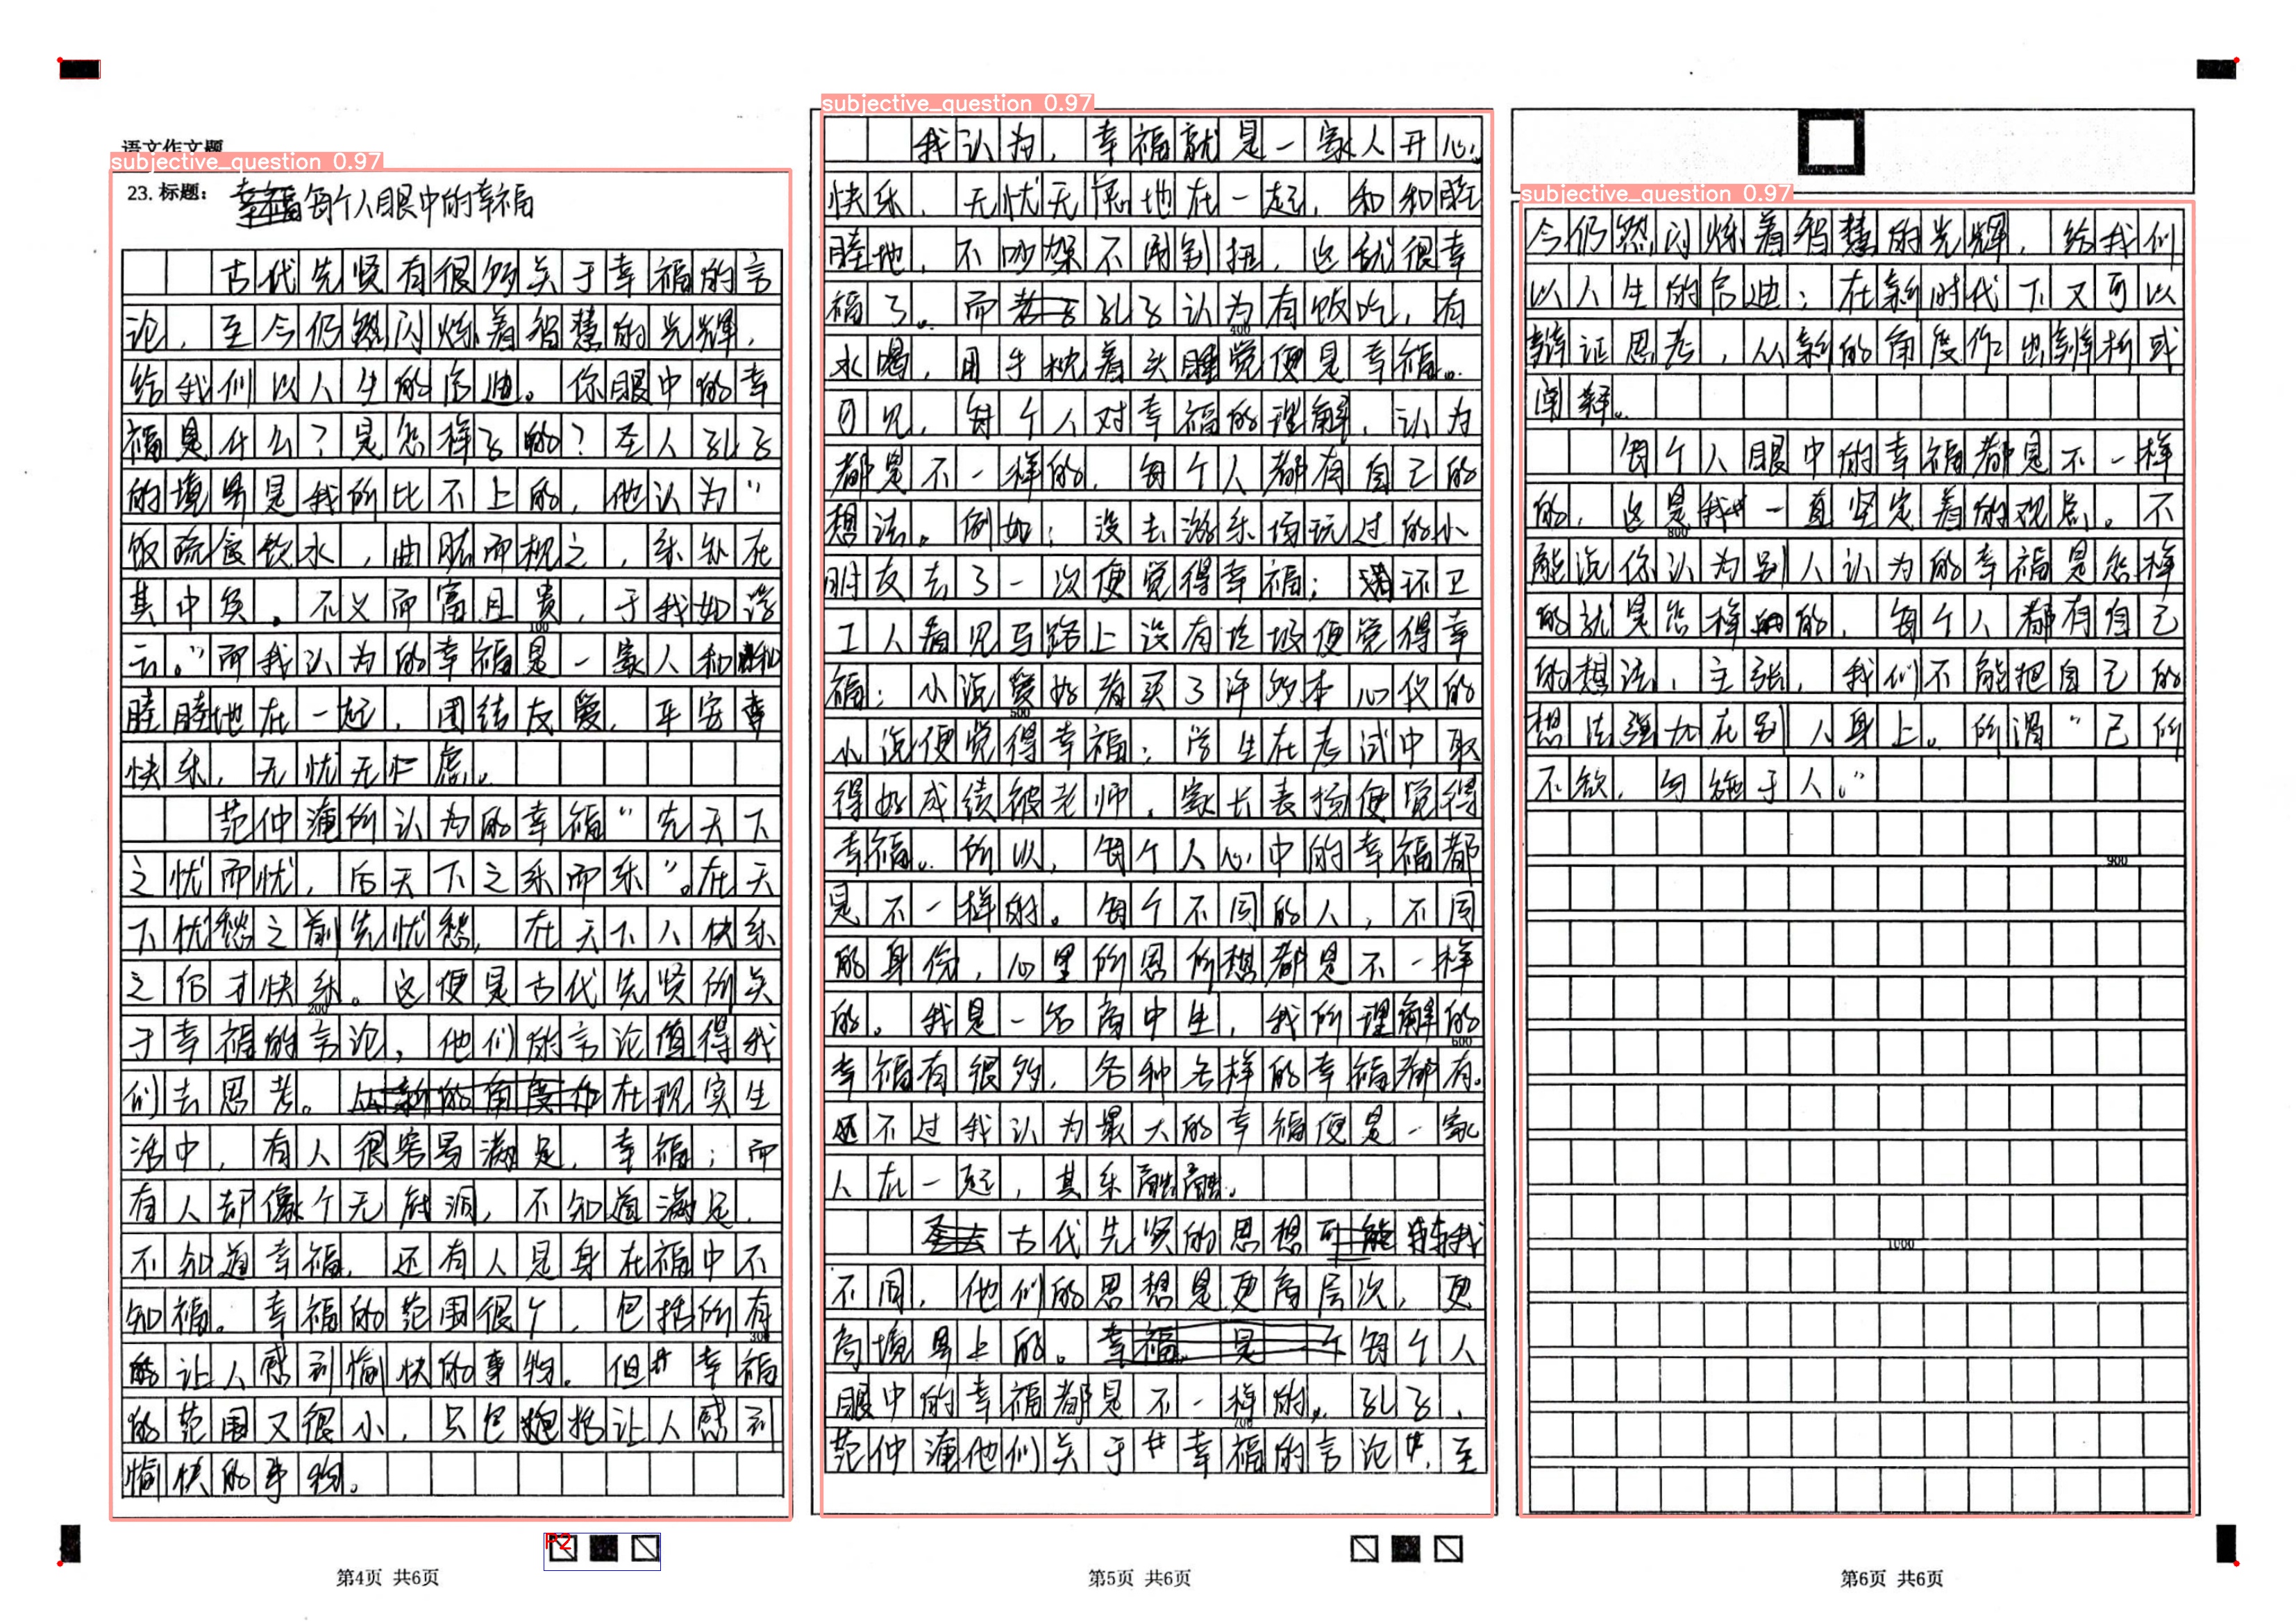 语文作文题
subjective_question 0.97
23. 标题: 每个人眼中的幸福
古代先贤有很多关于幸福的言
论，至今仍然闪烁着智慧的光辉，
给我们以人生的启迪。你眼中的幸
福是什么？是怎样子的？圣人孔子
的境界是我所比不上的，他认为“
饭疏食饮水，曲肱而枕之，乐亦在
其中矣。不义而富且贵，于我如浮
100
云。”而我认为的幸福是一家人和和
睦睦地在一起，团结友爱，平安幸
快乐，无忧无虑。
范仲淹所认为的幸福“先天下
之忧而忧，后天下之乐而乐”。在天
下忧愁之前先忧愁，在天下人快乐
之后才快乐。这便是古代先贤所关
200
于幸福的言论，他们的言论值得我
们去思考。在现实生
活中，有人很容易满足，幸福；而
有人却像个无底洞，不知道满足，
不知道幸福，还有人是身在福中不
知福。幸福的范围很广，包括所有
300
的让人感到愉快的事物。但幸福
的范围又很小，只包括让人感到
愉快的事物。
P2
第4页 共6页
subjective_question 0.97
我认为，幸福就是一家人开心
快乐，无忧无虑地在一起，和和睦
睦地，不吵架不闹别扭，这就很幸
福了。而孔子认为有饭吃，有
400
水喝，用手枕着头睡觉便是幸福。
可见，每个人对幸福的理解，认为
都是不一样的，每个人都有自己的
想法。例如：没去游乐场玩过的小
朋友去了一次便觉得幸福；环卫
工人看见马路上没有垃圾便觉得幸
福；小说爱好者买了许多本心仪的
500
小说便觉得幸福；学生在考试中取
得好成绩被老师，家长表扬便觉得
幸福。所以，每个人心中的幸福都
是不一样的。每个不同的人，不同
的身份，心里所思所想都是不一样
的。我是一名高中生，我所理解的
600
幸福有很多，各种各样的幸福都有。
不过我认为最大的幸福便是一家
人在一起，其乐融融。
古代先贤的思想与我
不同，他们的思想是更高层次，更
高境界上的。每个人
眼中的幸福都是不一样的。孔子、
700
范仲淹他们关于幸福的言论，至
第5页 共6页
subjective_question 0.97
今仍然闪烁着智慧的光辉，给我们
以人生的启迪；在新时代下又可以
辩证思考，从新的角度作出辨析或
阐释。
每个人眼中的幸福都是不一样
的，这是我一直坚定着的观点。不
800
能说你认为别人认为的幸福是怎样
的就是怎样的，每个人都有自己
的想法、主张，我们不能把自己的
想法强加在别人身上。所谓“己所
不欲，勿施于人。”
900
1000
第6页 共6页